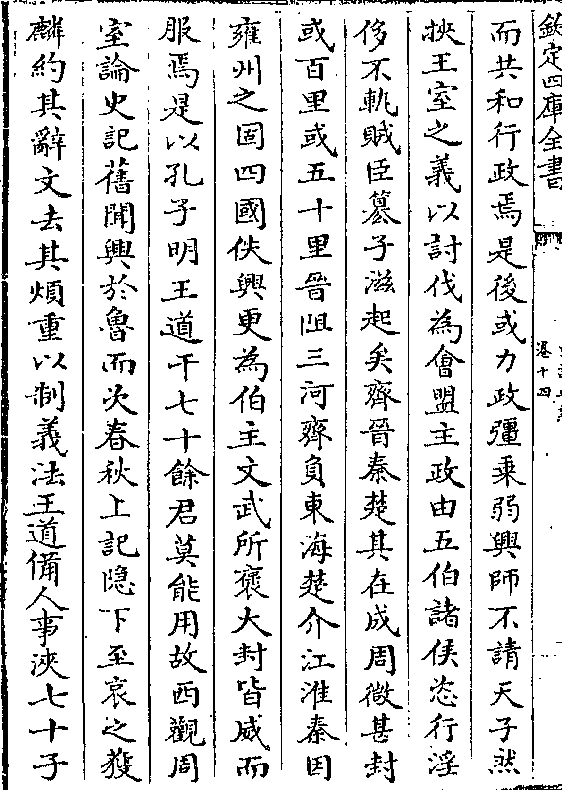 欽定四庫全書
卷十四
而共和行政焉是後或力政彊乘弱興師不請天子然
挾王室之義以討伐為會盟主政由五伯諸侯恣行淫
侈不軌賊臣篡子滋起矣齊晉秦楚其在成周微甚封
或百里或五十里晉阻三河齊負東海楚介江淮秦因
雍州之固四國佚興更為伯主文武所襃大封皆威而
服焉是以孔子明王道干七十餘君莫能用故西觀周
室論史記舊聞興於魯而次春秋上記隠下至哀之獲
麟約其辭文去其煩重以制義法王道備人事浹七十子